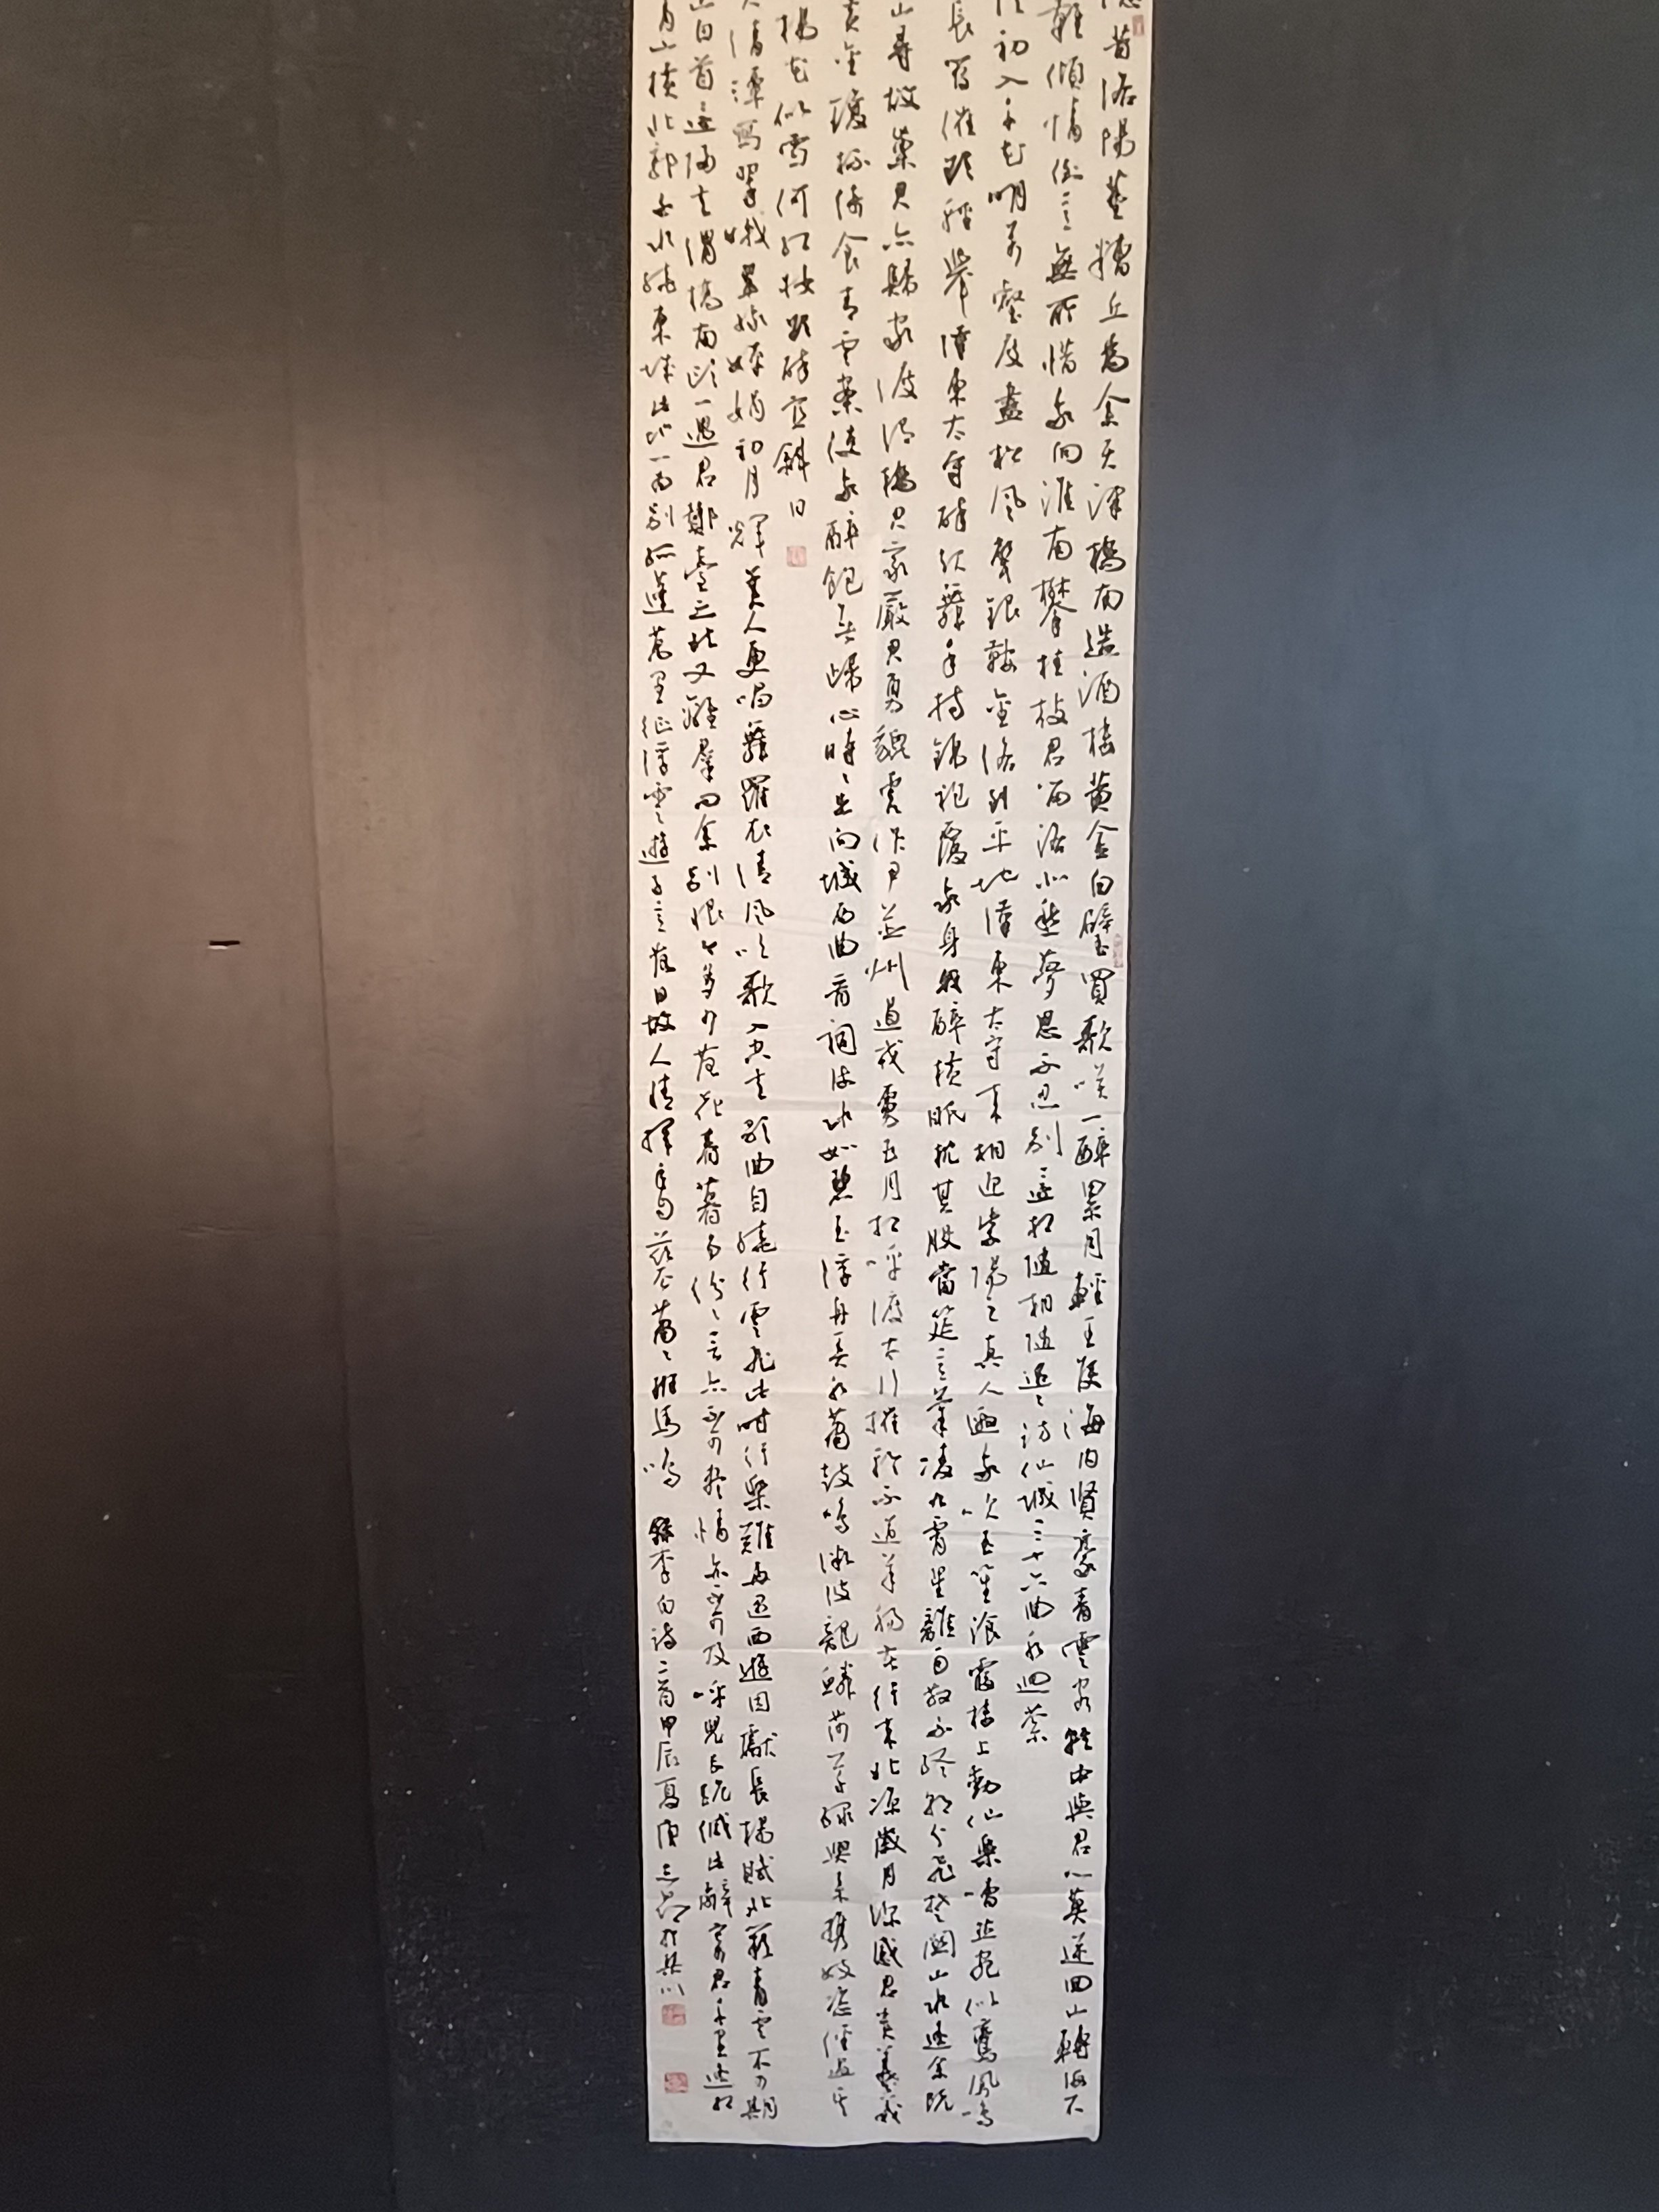 昔洛陽董糟丘為余天津橋南造酒樓黃金白璧買歌笑一醉累月輕王侯海內賢豪青雲客就中與君心莫逆回山轉海不
難傾情倒意無所惜我向淮南攀桂枝君留洛北愁夢思不忍別還相隨相隨迢迢訪仙城三十六曲水迴縈
初入千花明萬壑度盡松風聲銀鞍金絡到平地漢東太守來相迎紫陽之真人邀我吹玉笙湌霞樓上動仙樂嘈然宛似鸞鳳鳴
長管催欲輕舉漢東太守醉起舞手持錦袍覆我身我醉橫眠枕其股當筵意氣凌九霄星離雨散不終朝分飛楚關山水遙余既
山尋故巢君亦歸家渡渭橋君家嚴君勇貔虎作尹並州遏戎虜五月相呼渡太行摧輪不道羊腸苦行來北涼歲月深感君貴義輕
黃金瓊杯綺食青玉案使我醉飽無歸心時時出向城西曲晉祠流水如碧玉浮舟弄水簫鼓鳴微波龍鱗莎草綠興來攜妓恣經過其
楊花似雪何紅妝欲醉宜斜日
清潭寫翠娥翠娥嬋娟初月輝美人更唱舞羅衣清風吹歌入空去歌曲自繞行雲飛此時行樂難再遇西遊因獻長楊賦北闕青雲不可期
山白首還歸去渭橋南頭一遇君酇臺之北又離群問余別恨今多少落花春暮爭紛紛言亦不可盡情亦不可及呼兒長跪緘此辭寄君千里遙相
山橫北郭白水繞東城此地一為別孤蓬萬里征浮雲遊子意落日故人情揮手自茲去蕭蕭班馬鳴 錄李白詩二首甲辰夏